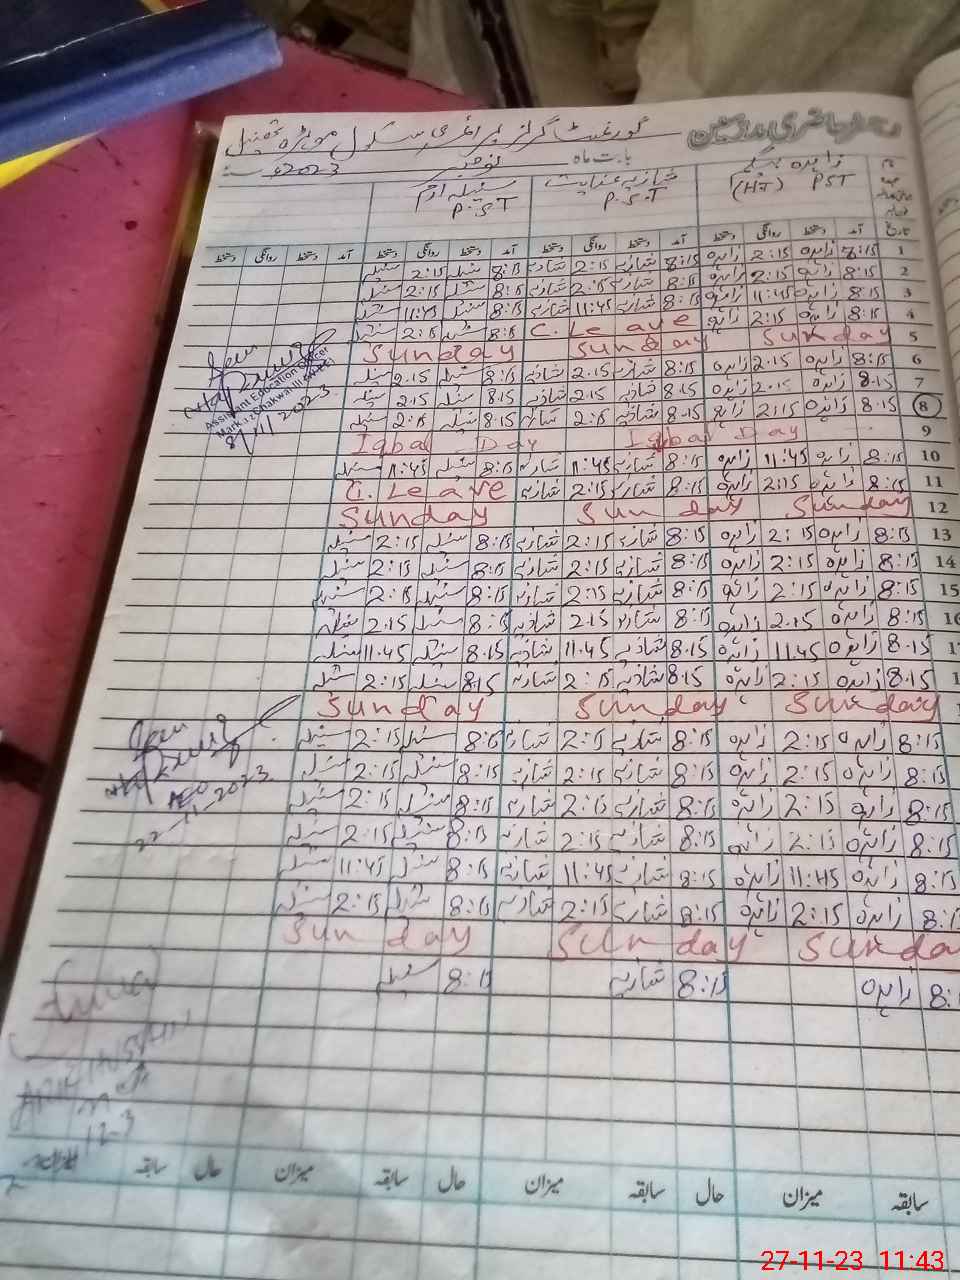 گورنمنٹ گرلز پرائمری سکول
بابت ماہ نومبر 2023ء
زاہدہ بیگم شازیہ عنایت سنیلہ ارم
(HT) PST P.S.T P.S.T
تاریخ آمد دستخط روانگی دستخط آمد دستخط روانگی دستخط آمد دستخط روانگی دستخط آمد دستخط روانگی دستخط
1 8:15 زاہدہ 2:15 زاہدہ 8:15 شازیہ 2:15 شازیہ 8:15 سنیلہ 2:15 سنیلہ
2 8:15 زاہدہ 2:15 زاہدہ 8:15 شازیہ 2:15 شازیہ 8:15 سنیلہ 2:15 سنیلہ
3 8:15 زاہدہ 11:45 زاہدہ 8:15 شازیہ 11:45 شازیہ 8:15 سنیلہ 11:45 سنیلہ
4 8:15 زاہدہ 2:15 زاہدہ C. Leave 8:15 سنیلہ 2:15 سنیلہ
5 Sunday Sunday Sunday
6 8:15 زاہدہ 2.15 زاہدہ 8:15 شازیہ 2.15 شازیہ 8:15 سنیلہ 2.15 سنیلہ
7 8.15 زاہدہ 2.15 زاہدہ 8.15 شازیہ 2.15 شازیہ 8.15 سنیلہ 2.15 سنیلہ
8 8.15 زاہدہ 2:15 زاہدہ 8.15 شازیہ 2:15 شازیہ 8.15 سنیلہ 2:15 سنیلہ
Assistant Education Officer
8/11/2023
9 Iqbal Day Iqbal Day
10 8:15 زاہدہ 11:45 زاہدہ 8:15 شازیہ 11:45 شازیہ 8:15 سنیلہ 11:45 سنیلہ
11 8:15 زاہدہ 2:15 زاہدہ 8:15 شازیہ 2:15 شازیہ C. Leave
12 Sunday Sunday Sunday
13 8:15 زاہدہ 2:15 زاہدہ 8:15 شازیہ 2:15 شازیہ 8:15 سنیلہ 2:15 سنیلہ
14 8:15 زاہدہ 2:15 زاہدہ 8:15 شازیہ 2:15 شازیہ 8:15 سنیلہ 2:15 سنیلہ
15 8:15 زاہدہ 2:15 زاہدہ 8:15 شازیہ 2:15 شازیہ 8:15 سنیلہ 2:15 سنیلہ
8:15 زاہدہ 2.15 زاہدہ 8:15 شازیہ 2.15 شازیہ 8:15 سنیلہ 2.15 سنیلہ
8.15 زاہدہ 11.45 زاہدہ 8.15 شازیہ 11.45 شازیہ 8.15 سنیلہ 11.45 سنیلہ
8.15 زاہدہ 2:15 زاہدہ 8.15 شازیہ 2:15 شازیہ 8.15 سنیلہ 2:15 سنیلہ
Sunday Sunday Sunday
8:15 زاہدہ 2:15 زاہدہ 8:15 شازیہ 2:15 شازیہ 8:15 سنیلہ 2:15 سنیلہ
8:15 زاہدہ 2:15 زاہدہ 8:15 شازیہ 2:15 شازیہ 8:15 سنیلہ 2:15 سنیلہ
AEO
8:15 زاہدہ 2:15 زاہدہ 8:15 شازیہ 2:15 شازیہ 8:15 سنیلہ 2:15 سنیلہ
22-11-2023
8:15 زاہدہ 2:15 زاہدہ 8:15 شازیہ 2:15 شازیہ 8:15 سنیلہ 2:15 سنیلہ
8:15 زاہدہ 11:45 زاہدہ 8:15 شازیہ 11:45 شازیہ 8:15 سنیلہ 11:45 سنیلہ
زاہدہ 2:15 زاہدہ 8:15 شازیہ 2:15 شازیہ 8:15 سنیلہ 2:15 سنیلہ
Sunday Sunday
زاہدہ 8:15 شازیہ 8:15 سنیلہ
سابقہ میزان حال سابقہ میزان حال سابقہ میزان حال سابقہ
27-11-23 11:43